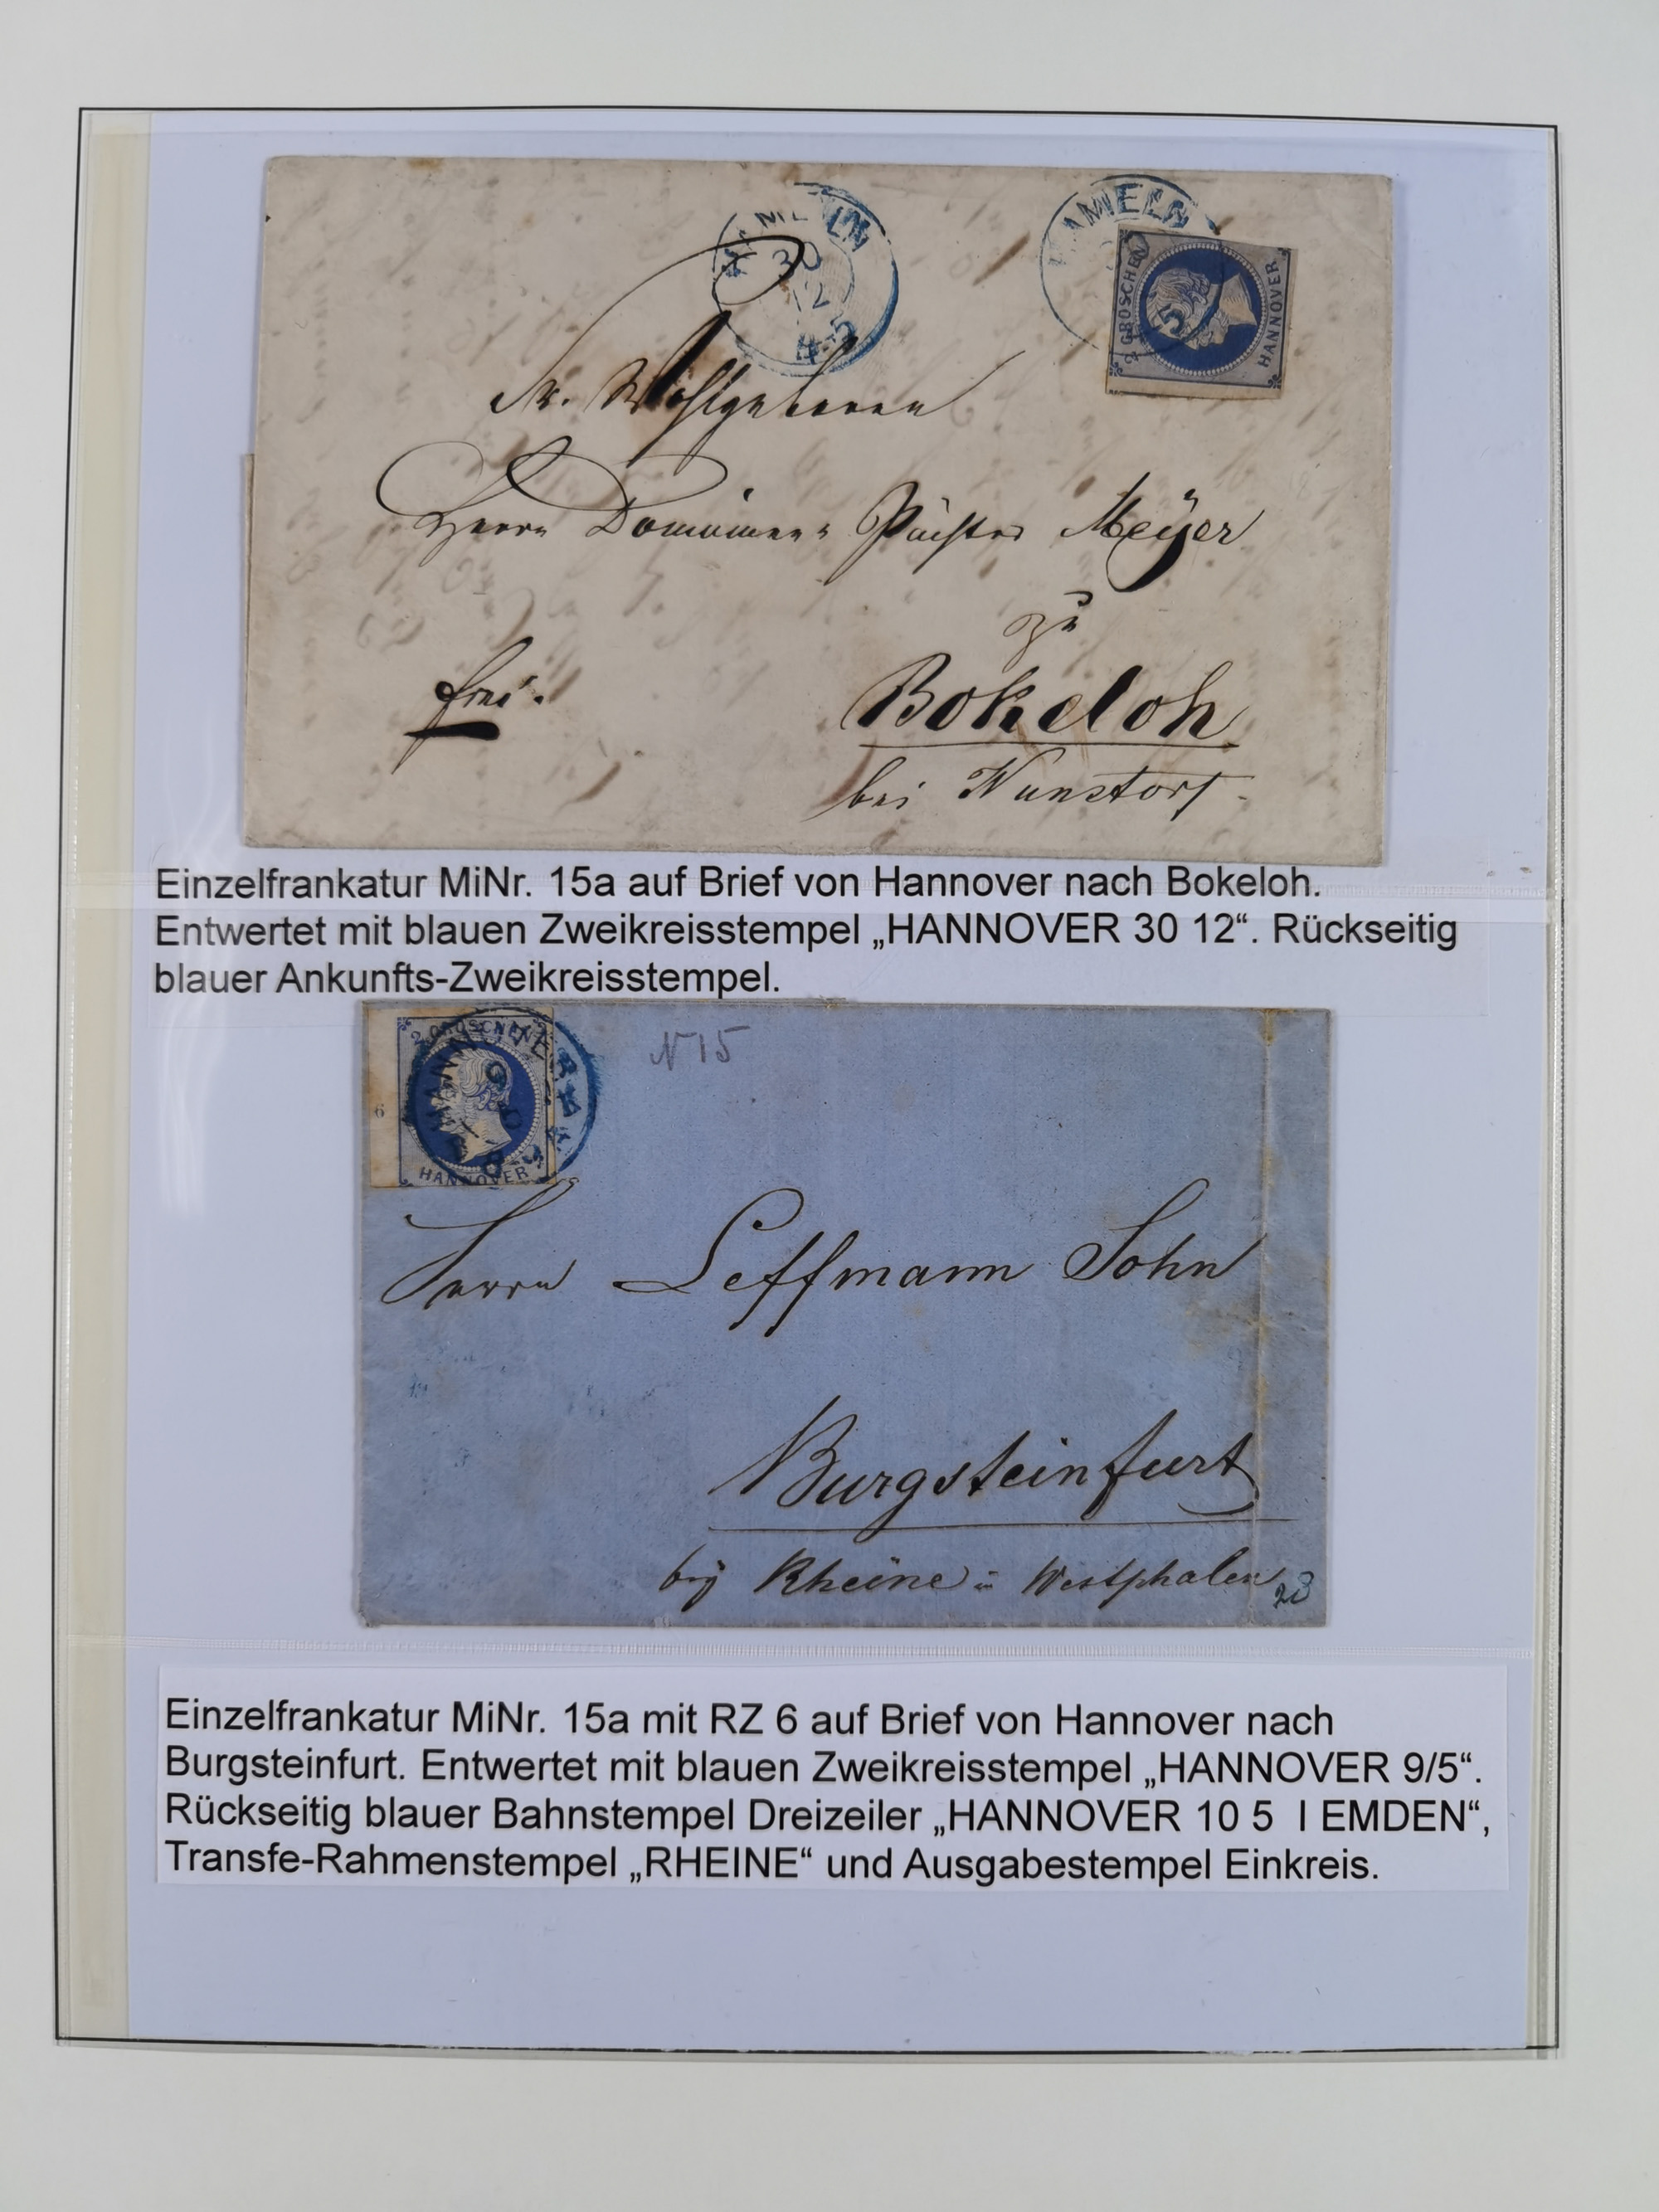 HAMELN
30
12
4-5
HAMELN
5
2 GROSCHEN
HANNOVER.
Sr. Wohlgeboren
Herrn Domainen Pächter Meÿer
zu
frei.
Bokeloh
bei Wunstorf.
Einzelfrankatur MiNr. 15a auf Brief von Hannover nach Bokeloh.
Entwertet mit blauen Zweikreisstempel „HANNOVER 30 12“. Rückseitig
blauer Ankunfts-Zweikreisstempel.
2 GROSCHEN
HANNOVER
6
HANNOVER
N 15
Herrn Leffmann Sohn
Burgsteinfurt
bÿ Rheine in Westphalen
23
Einzelfrankatur MiNr. 15a mit RZ 6 auf Brief von Hannover nach
Burgsteinfurt. Entwertet mit blauen Zweikreisstempel „HANNOVER 9/5“.
Rückseitig blauer Bahnstempel Dreizeiler „HANNOVER 10 5 I EMDEN“,
Transfe-Rahmenstempel „RHEINE“ und Ausgabestempel Einkreis.